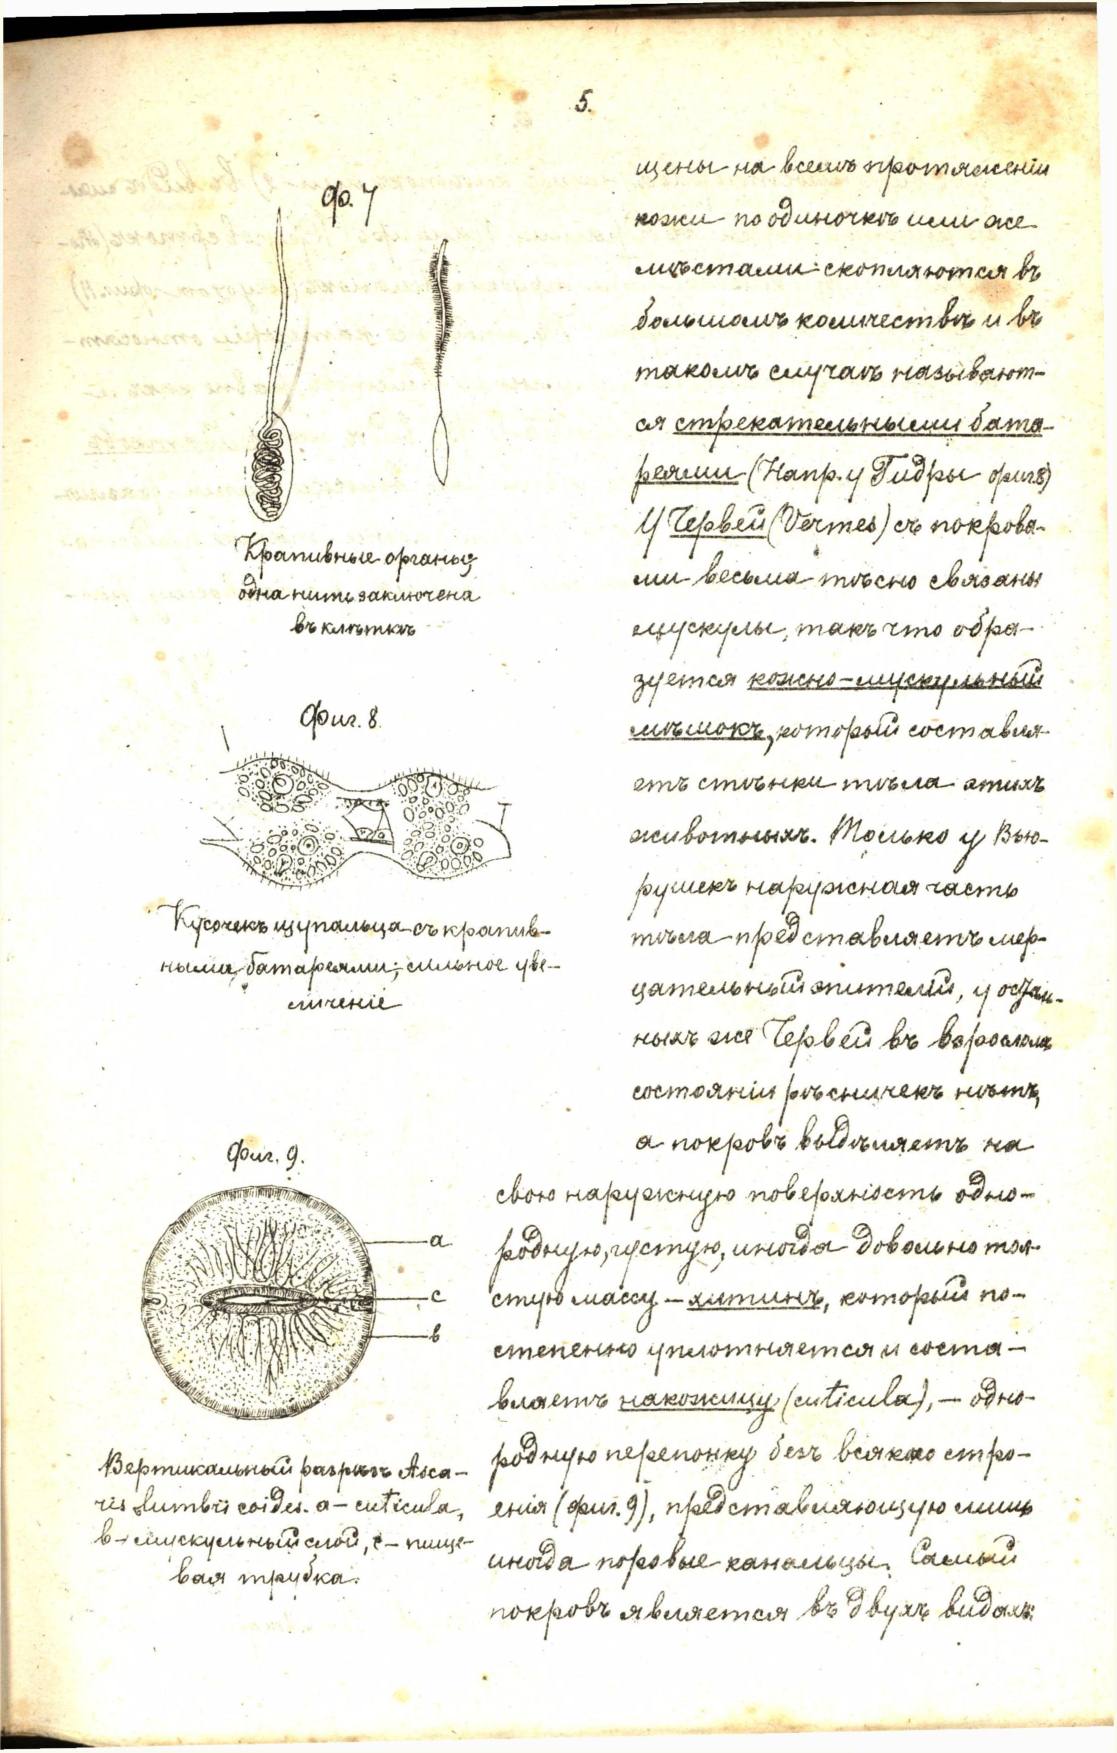 5.
Ф. 7
Крапивные органы;
одна нить заключена
въ клѣткѣ
Фиг. 8.
Кусочекъ щупальца съ крапив-
ными батареями; сильное уве-
личеніе
Фиг. 9.
a
c
в
Вертикальный разрѣзъ Asca-
ris lumbricoides. a – cuticula,
в – мускульный слой, c – пище-
вая трубка.
щены на всемъ протяженіи
кожи по одиночкѣ или же
мѣстами скопляются въ
большомъ количествѣ и въ
такомъ случаѣ называют-
ся стрекательными бата-
реями (Напр. у Гидры фиг 8)
У Червей (Vermes) съ покрова-
ми весьма тѣсно связаны
мускулы, такъ что обра-
зуется кожно-мускульный
мѣшокъ, который составля-
етъ стѣнки тѣла этихъ
животныхъ. Только у Вью-
рушекъ наружная часть
тѣла представляетъ мер-
цательный эпителій, у осталь-
ныхъ же Червей въ взросломъ
состояніи рѣсничекъ нѣтъ,
а покровъ выдѣляетъ на
свою наружную поверхность одно-
родную, густую, иногда довольно тол-
стую массу – хитинъ, который по-
степенно уплотняется и соста-
вляетъ накожицу (cuticula), – одно-
родную перепонку безъ всякаго стро-
енія (фиг. 9), представляющую лишь
иногда поровые канальцы. Самый
покровъ является въ двухъ видахъ: